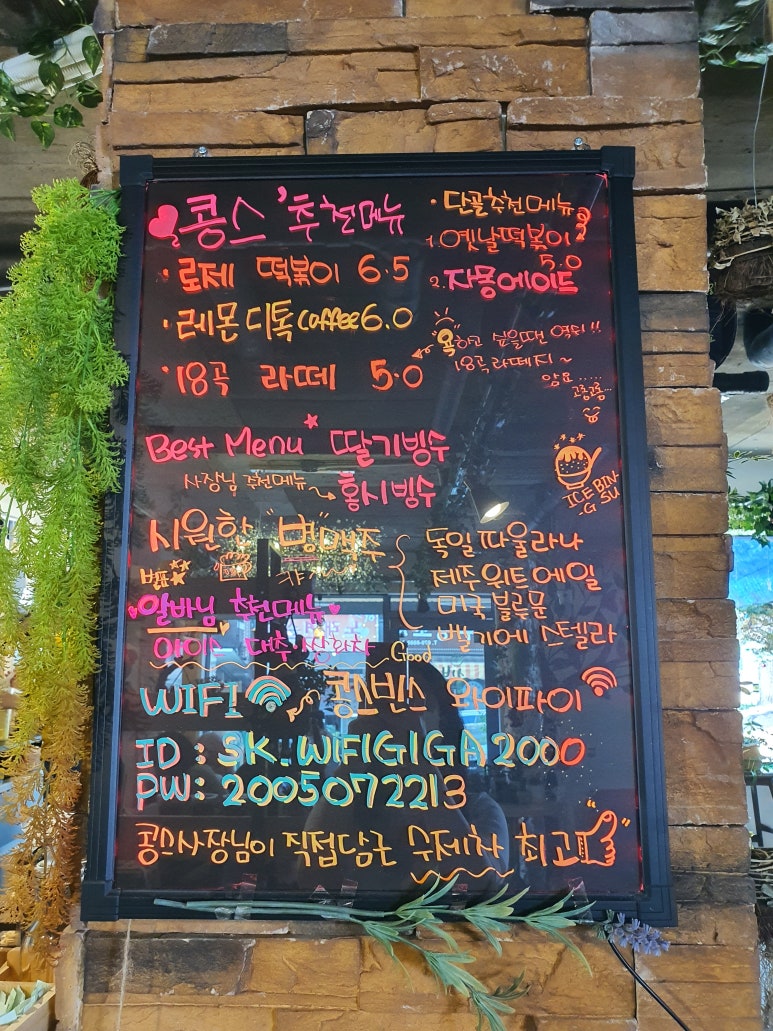 콩스 '추천메뉴
· 로제 떡볶이 6.5
· 레몬 디톡 coffee 6.0
· 18곡 라떼 5.0
· 단골추천메뉴
1. 옛날떡볶이
5.0
2. 자몽에이드
욕하고 싶을땐 역쉬!!
18곡라떼지~
Best Menu 딸기빙수
사장님 추천메뉴 홍시빙수
ICE BIN
G SU
시원한 "병"맥주
독일 파울라나
제주 위트에일
미국 블루문
벨기에 스텔라
알바님 추천메뉴
아이스 대추쌍화차 Good
WIFI 콩스빈스 와이파이
ID : SK_WIFIGIGA2000
PW : 2005072213
콩스사장님이 직접담근 수제차 최고